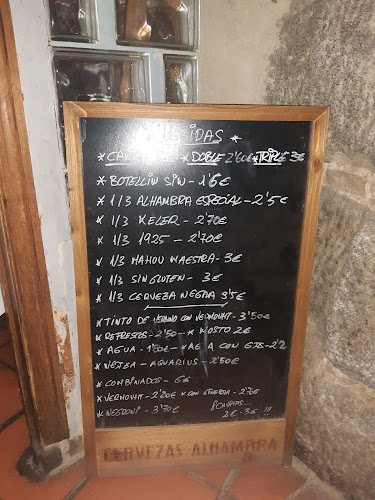 BEBIDAS
* DOBLE 2'60€ * TRIPLE 3€
* BOTELLIN SIN - 1'6€
* 1/3 ALHAMBRA ESPECIAL - 2'5€
* 1/3 KELER - 2'70€
* 1/3 1925 - 2'70€
* 1/3 MAHOU MAESTRA - 3€
* 1/3 SIN GLUTEN - 3€
* 1/3 CERVEZA NEGRA 3'5€
* TINTO DE VERANO CON VERMOUHT - 3'50€
* REFRESCOS - 2'50 - * MOSTO 2€
* AGUA - 1'80€ - * AGUA CON GAS - 2'2
* NESTEA - AQUARIUS - 2'50€
* COMBINADOS - 6€
* VERMOUHT - 2'20€ * CON GINEBRA - 2'70€
* NEGRONI - 3'70€
2€ - 3€ !!!
CERVEZAS ALHAMBRA